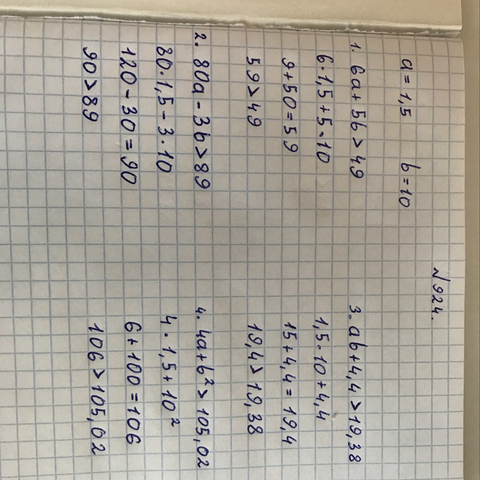 №924.
a = 1,5 b = 10
1. 6a + 5b > 49
6·1,5 + 5·10
9 + 50 = 59
59 > 49
2. 80a - 3b > 89
80·1,5 - 3·10
120 - 30 = 90
90 > 89
3. ab + 4,4 > 19,38
1,5·10 + 4,4
15 + 4,4 = 19,4
19,4 > 19,38
4. 4a + b² > 105,02
4·1,5 + 10²
6 + 100 = 106
106 > 105,02